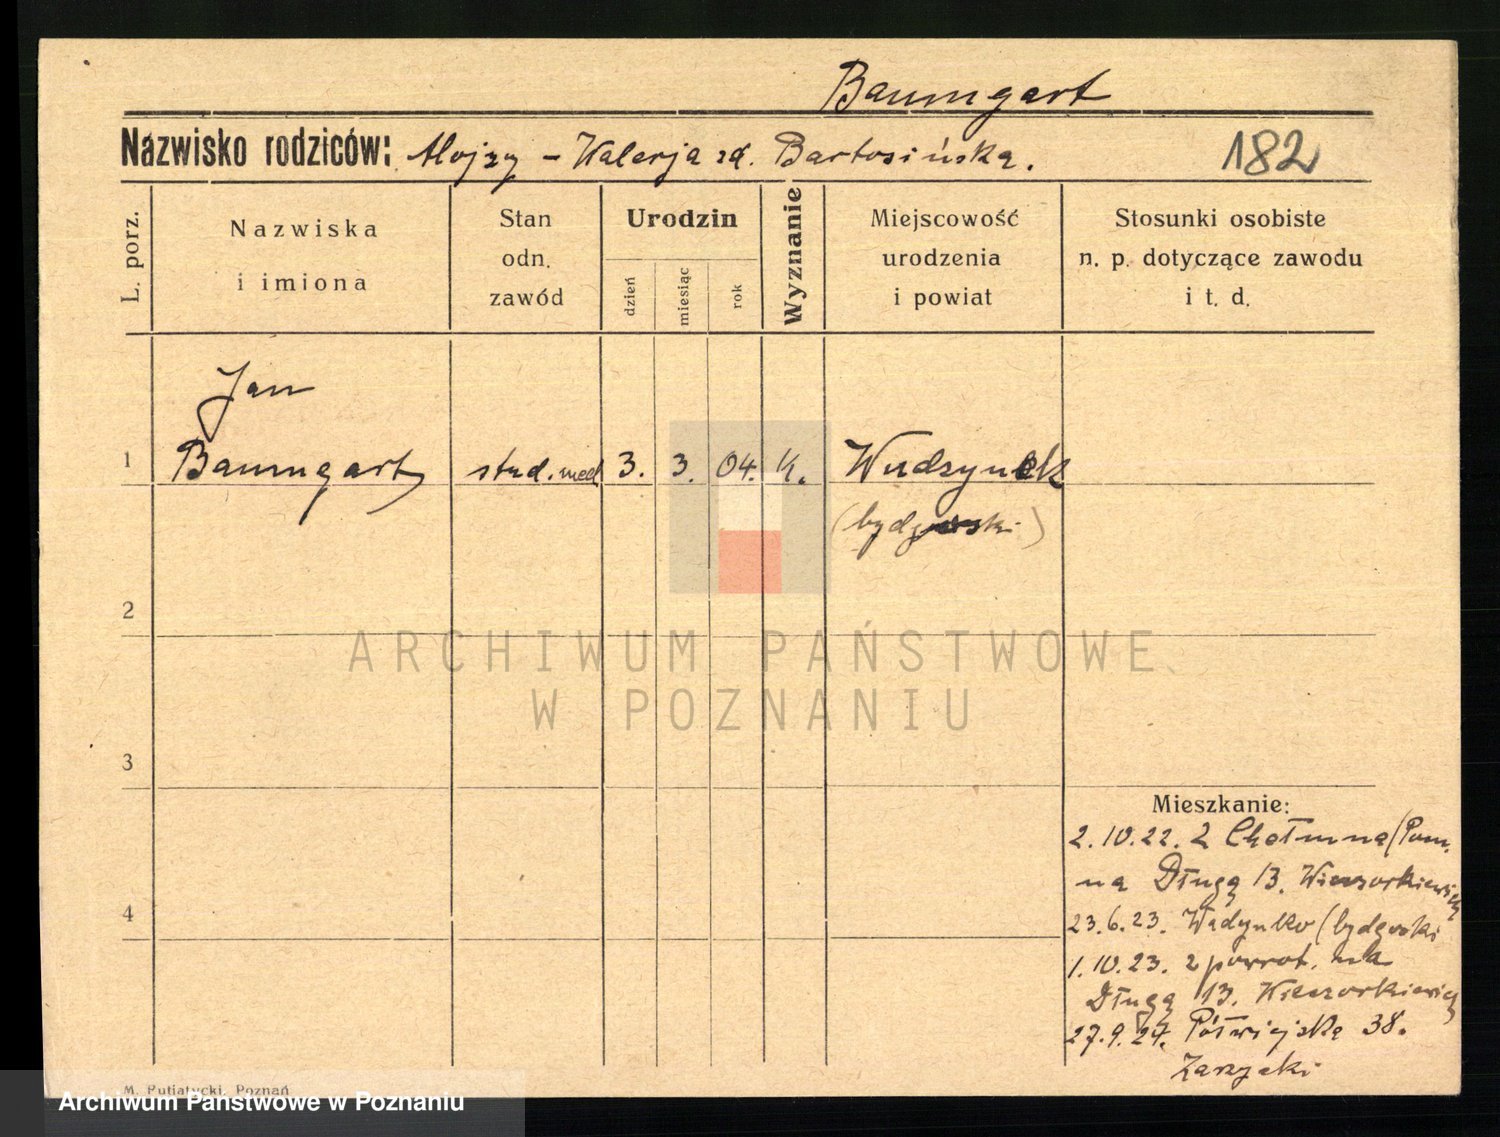 Baumgart
Nazwisko rodziców: Alojzy – Walerja zd. Bartosińska.
182
L. porz.
Nazwiska
i imiona
Stan
odn.
zawód
Urodzin
dzień
miesiąc
rok
Wyznanie
Miejscowość
urodzenia
i powiat
Stosunki osobiste
n. p. dotyczące zawodu
i t. d.
Jan
1 Baumgart stud. med. 3. 3. 04. k. Wudzynek
(bydgoski)
2
ARCHIWUM PAŃSTWOWE
W POZNANIU
3
Mieszkanie:
2.10.22. z Chełmna (Pom.
na Długą 13. Wieczorkiewicz
4
23.6.23. (bydgoski
1.10.23. z powrot. na
Długą 13. Wieczorkiewicz
27.9.24. Półwiejska 38.
Zarzycki
M. Putiatycki, Poznań
Archiwum Państwowe w Poznaniu